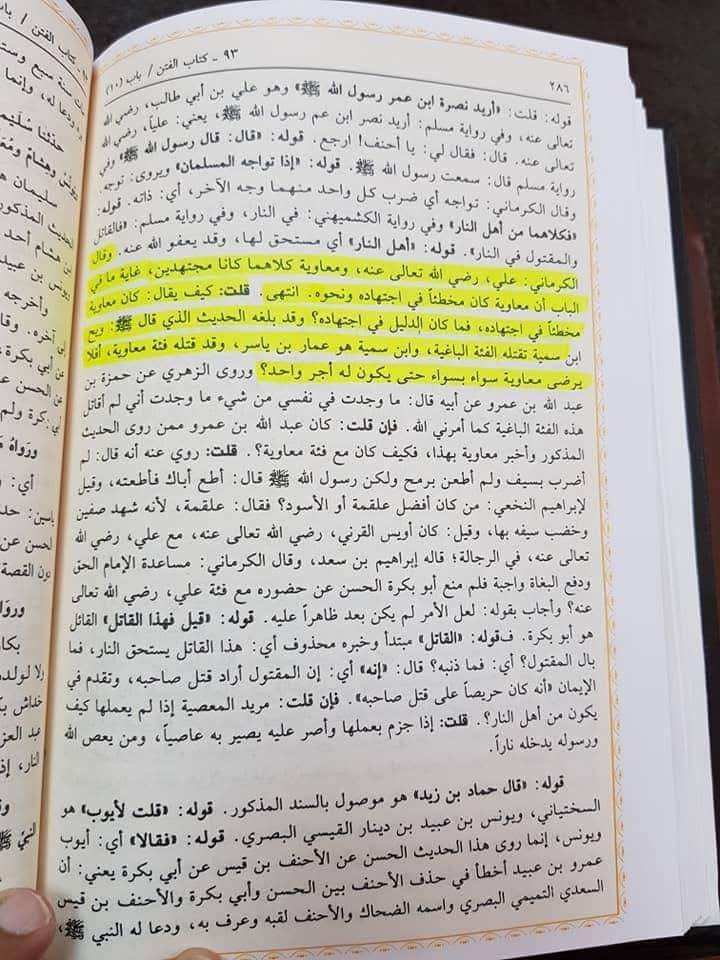 ٩٣ - كتاب الفتن / باب (١٠)
٢٨٦
قوله: قلت: «أريد نصرة ابن عمر رسول الله ﷺ» وهو علي بن أبي طالب، رضي الله
تعالى عنه، وفي رواية مسلم: أريد نصر ابن عم رسول الله ﷺ، يعني: علياً، رضي الله
تعالى عنه. قال: فقال لي: يا أحنف! ارجع. قوله: «قال: قال رسول الله ﷺ» وفي
رواية مسلم قال: سمعت رسول الله ﷺ. قوله: «إذا تواجه المسلمان» ويروى: توجه.
وقال الكرماني: تواجه أي ضرب كل واحد منهما وجه الآخر، أي: ذاته. قوله:
«فكلاهما من أهل النار» وفي رواية الكشميهني: في النار، وفي رواية مسلم: «فالقاتل
والمقتول في النار». قوله: «أهل النار» أي مستحق لها، وقد يعفو الله عنه. وقال
الكرماني: علي، رضي الله تعالى عنه، ومعاوية كلاهما كانا مجتهدين، غاية ما في
الباب أن معاوية كان مخطئاً في اجتهاده ونحوه. انتهى. قلت: كيف يقال: كان معاوية
مخطئاً في اجتهاده، فما كان الدليل في اجتهاده؟ وقد بلغه الحديث الذي قال ﷺ: ويح
ابن سمية تقتله الفئة الباغية، وابن سمية هو عمار بن ياسر، وقد قتله فئة معاوية، أفلا
يرضى معاوية سواء بسواء حتى يكون له أجر واحد؟ وروى الزهري عن حمزة بن
عبد الله بن عمرو عن أبيه قال: ما وجدت في نفسي من شيء ما وجدت أني لم أقاتل
هذه الفئة الباغية كما أمرني الله. فإن قلت: كان عبد الله بن عمرو ممن روى الحديث
المذكور وأخبر معاوية بهذا، فكيف كان مع فئة معاوية؟. قلت: روي عنه أنه قال: لم
أضرب بسيف ولم أطعن برمح ولكن رسول الله ﷺ قال: أطع أباك فأطعته، وقيل
لإبراهيم النخعي: من كان أفضل علقمة أو الأسود؟ فقال: علقمة، لأنه شهد صفين
وخضب سيفه بها، وقيل: كان أويس القرني، رضي الله تعالى عنه، مع علي، رضي الله
تعالى عنه، في الرجالة؛ قاله إبراهيم بن سعد، وقال الكرماني: مساعدة الإمام الحق
ودفع البغاة واجبة فلم منع أبو بكرة الحسن عن حضوره مع فئة علي، رضي الله تعالى
عنه؟ وأجاب بقوله: لعل الأمر لم يكن بعد ظاهراً عليه. قوله: «قيل فهذا القاتل» القائل
هو أبو بكرة. فقوله: «القاتل» مبتدأ وخبره محذوف أي: هذا القاتل يستحق النار، فما
بال المقتول؟ أي: فما ذنبه؟ قال: «إنه» أي: إن المقتول أراد قتل صاحبه، وتقدم في
الإيمان «أنه كان حريصاً على قتل صاحبه». فإن قلت: مريد المعصية إذا لم يعملها كيف
يكون من أهل النار؟. قلت: إذا جزم بعملها وأصر عليه يصير به عاصياً، ومن يعص الله
ورسوله يدخله ناراً.
قوله: «قال حماد بن زيد» هو موصول بالسند المذكور. قوله: «قلت لأيوب» هو
السختياني، ويونس بن عبيد بن دينار القيسي البصري. قوله: «فقالا» أي: أيوب
ويونس، إنما روى هذا الحديث الحسن عن الأحنف بن قيس عن أبي بكرة يعني: أن
عمرو بن عبيد أخطأ في حذف الأحنف بين الحسن وأبي بكرة والأحنف بن قيس
السعدي التميمي البصري واسمه الضحاك والأحنف لقبه وعرف به، ودعا له النبي ﷺ،